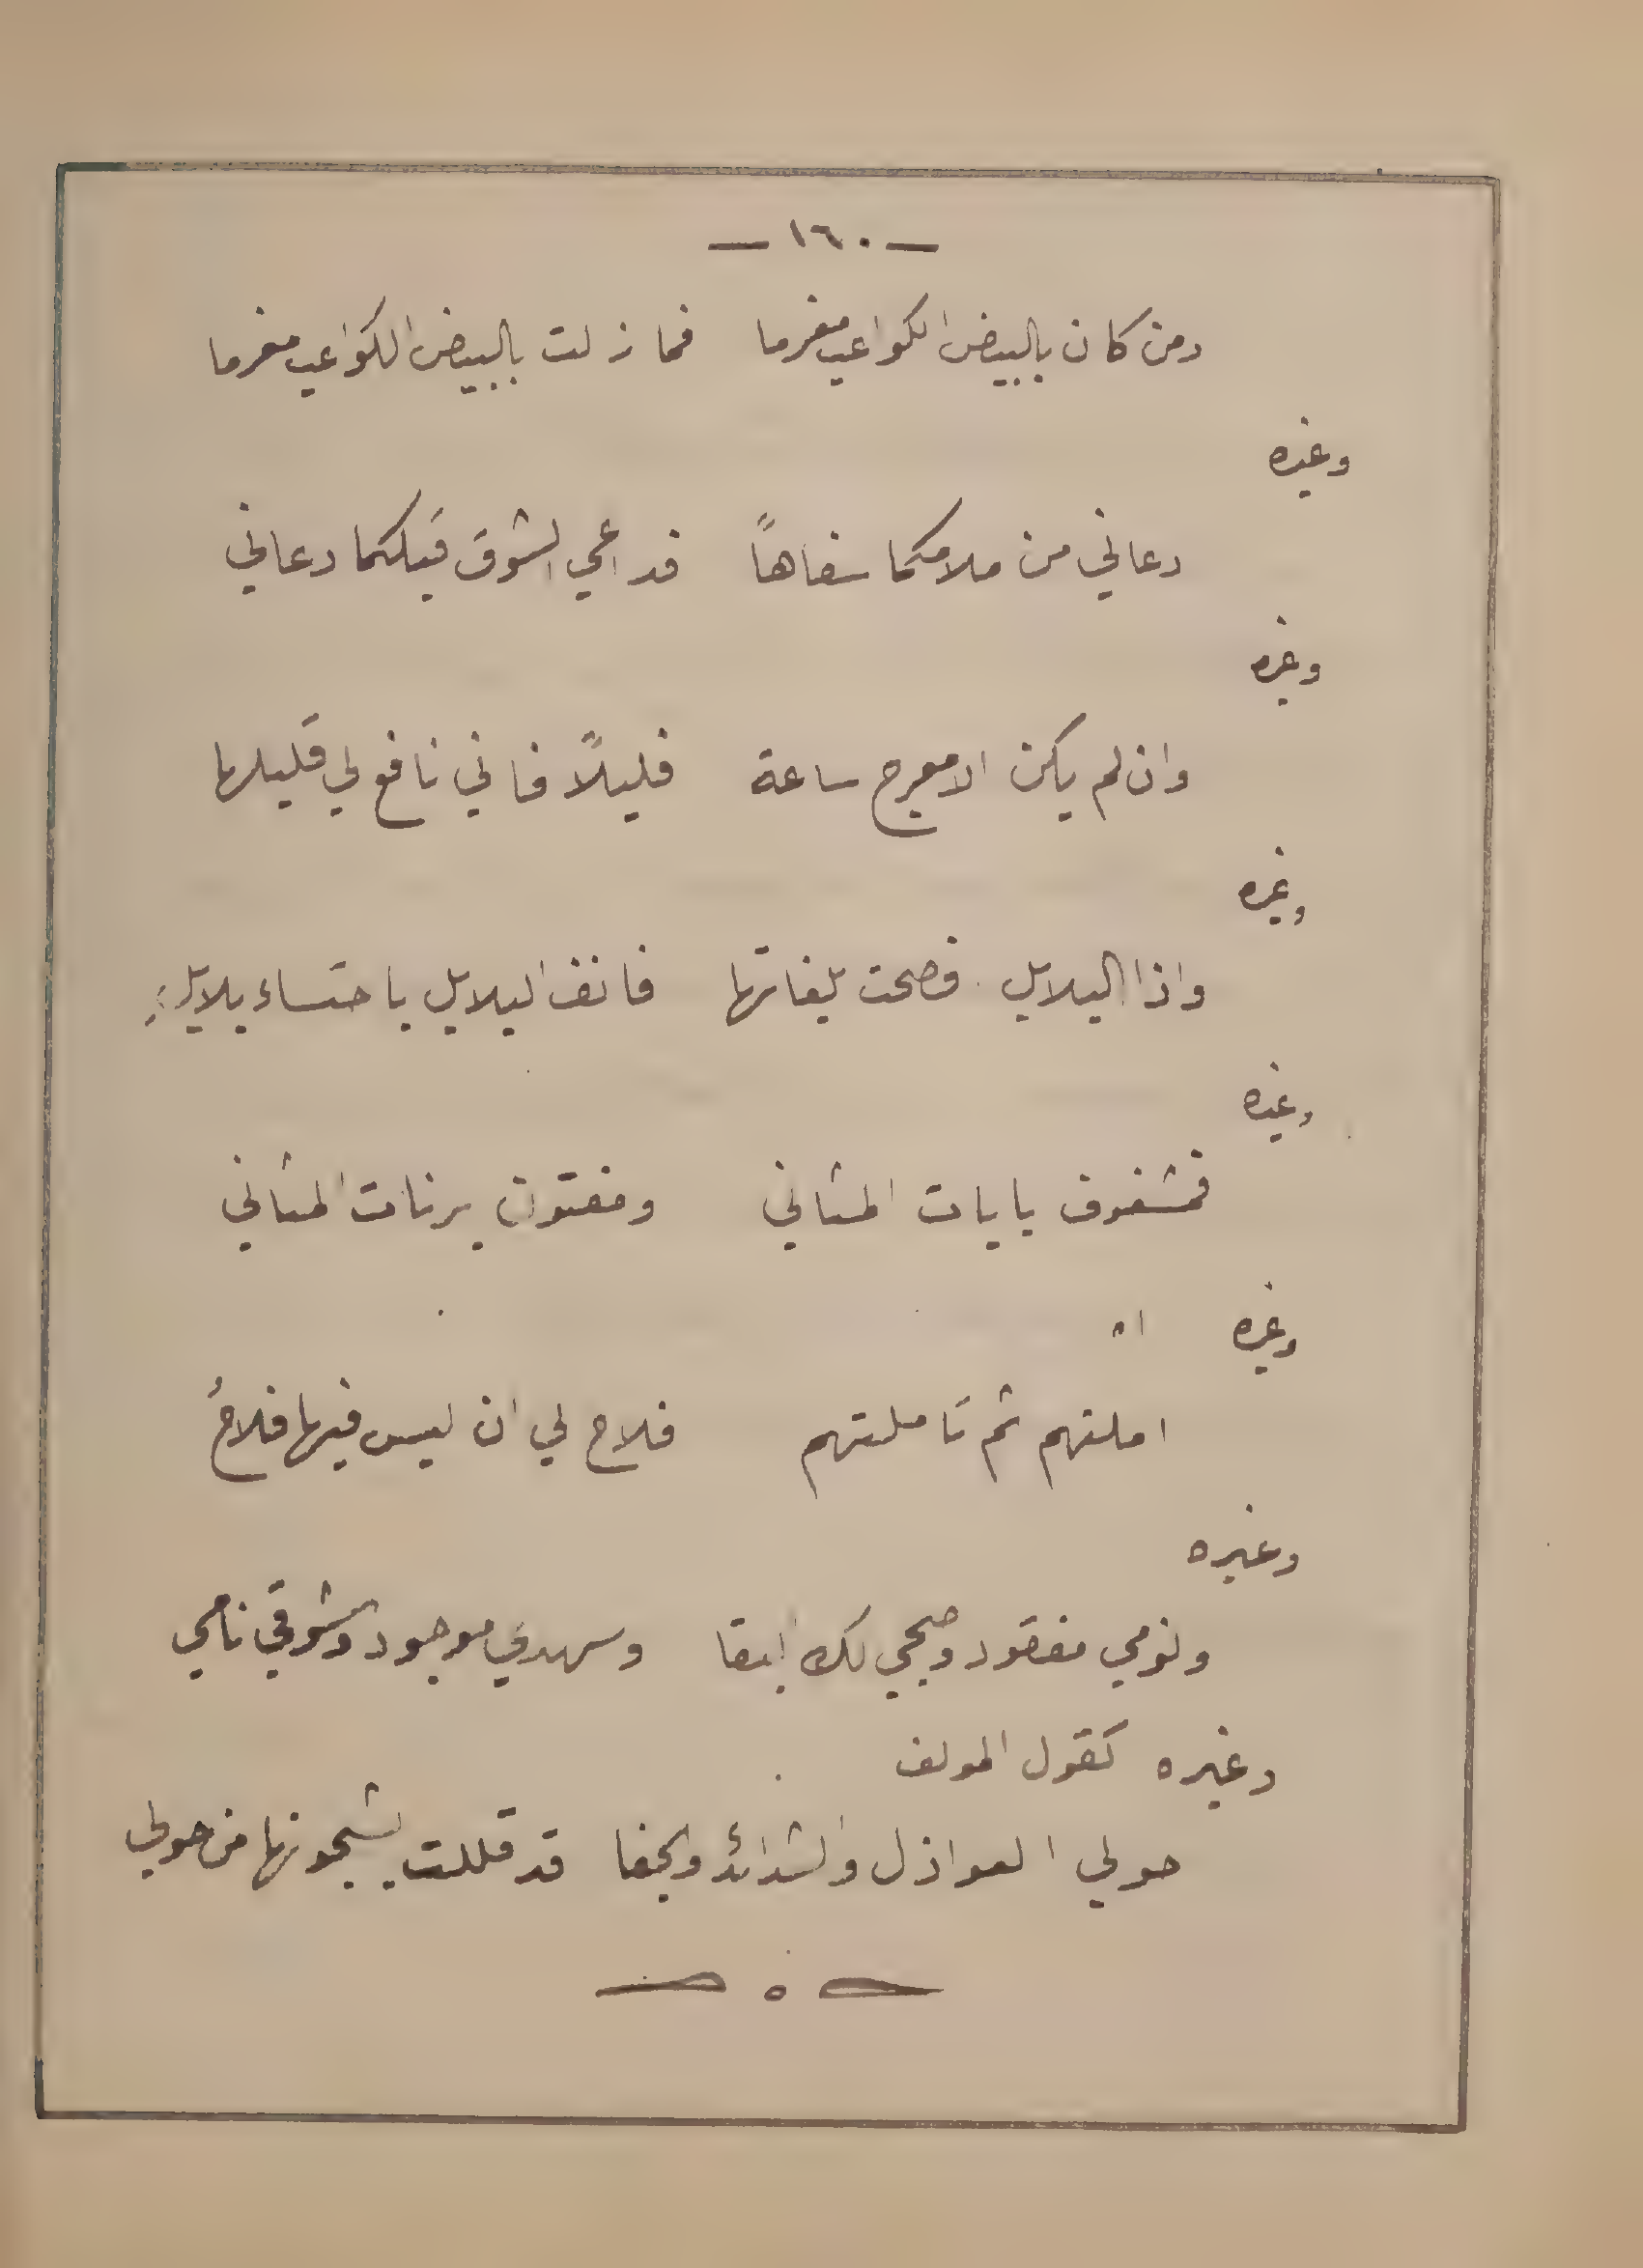 — ١٦٠ —
ومن كان بالبيض الكواعب مغرما فما زلت بالبيض الكواعب مغرما
وغيره
دعاني من ملامكما سفاهاً فداعي الشوق قبلكما دعاني
وغيره
وان لم يكن الا معرج ساعة قليلاً فاني نافع لي قليلها
وغيره
واذا البلابل فصحت بلغاتها فانف البلابل باحتساء بلابل
وغيره
فمشغوف بايات المثاني ومفتون برنات المثاني
وغيره
املتهم ثم تاملتهم فلاح لي ان ليس فيها فلاحُ
وغيره
ونومي مفقود وصحبي لك البقا وسهدي موجود وشوقي نامي
وغيره كقول المولف
حولي العواذل والشدائد والجفا قد قللت بشجونها من حولي